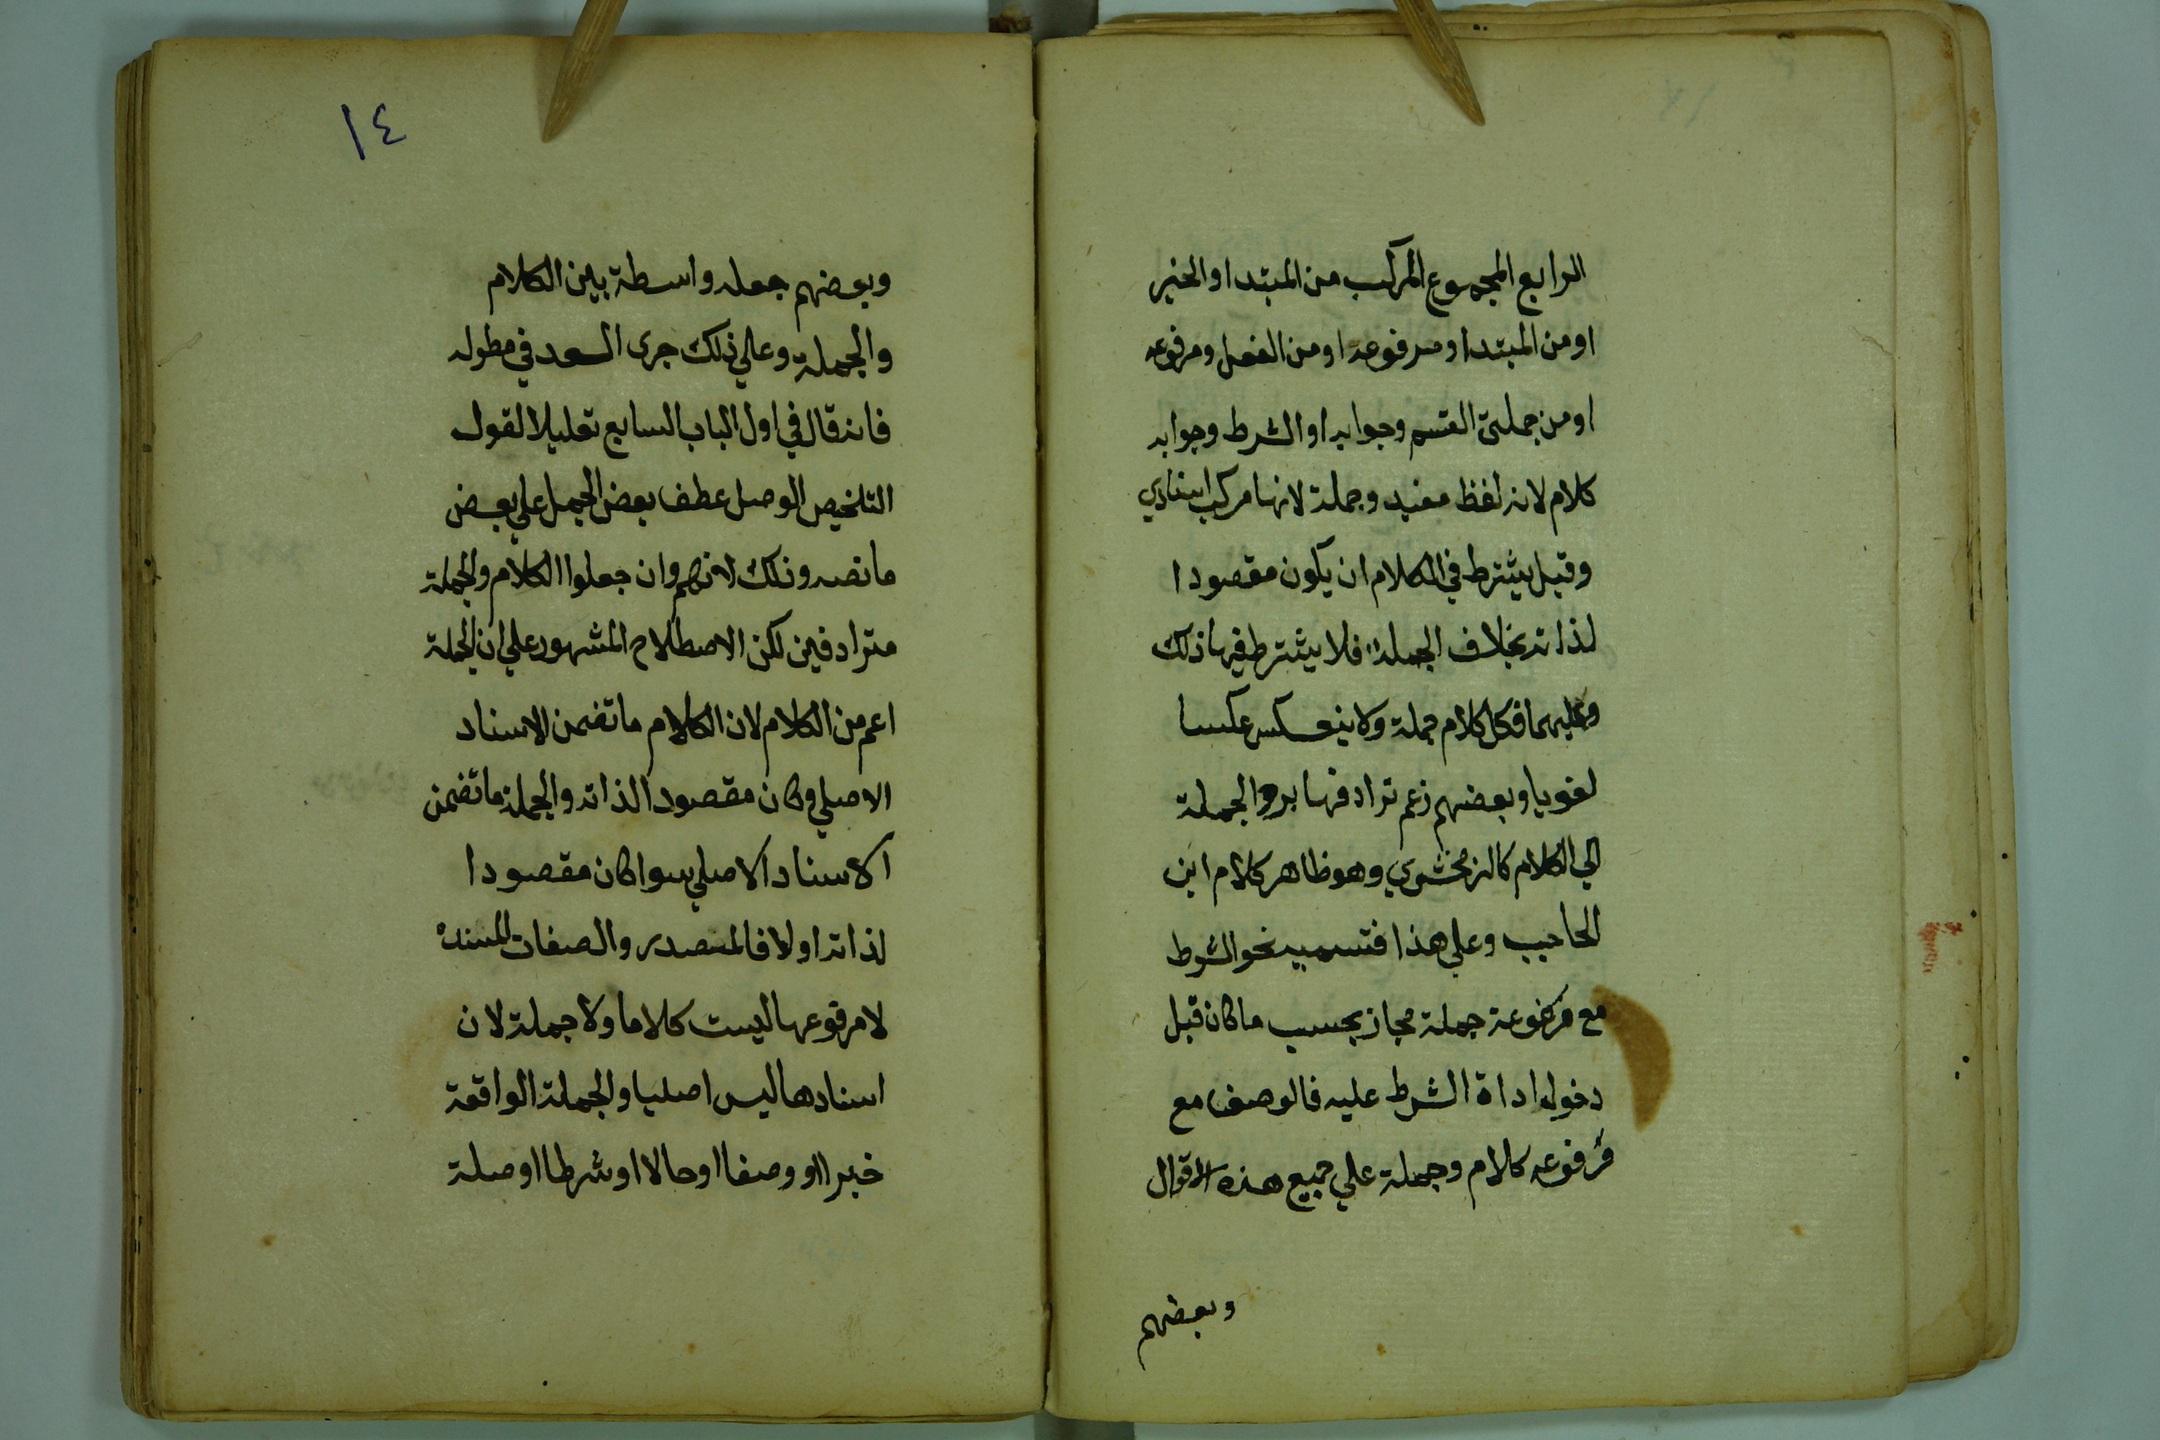 الرابع المجموع المركب من المبتدا والخبر
او من المبتدا ومرفوعه او من الفعل ومرفوعه
او من جملتي القسم وجوابه او الشرط وجوابه
كلام لانه لفظ مفيد وجملة لانها مركب اسنادي
وقيل يشترط في الكلام ان يكون مقصودا
لذاته بخلاف الجملة فلا يشترط فيها ذلك
وعليهما فكل كلام جملة ولا ينعكس عكسا
لغويا وبعضهم زعم ترادفهما برد الجملة
الي الكلام كالزمخشري وهو ظاهر كلام ابن
الحاجب وعلي هذا فتسميه نحو الشرط
مع مرفوعة جملة مجاز بحسب ما كان قبل
دخول اداة الشرط عليه فالوصف مع
مرفوعه كلام وجملة علي جميع هذه الاقوال
وبعضهم
١٤
وبعضهم جعله واسطة بين الكلام
والجملة وعلي ذلك جرى السعد في مطوله
فانه قال في اول الباب السابع تعليلا لقول
التلخيص الوصل عطف بعض الجمل علي بعض
ما نصه وذلك لانهم وان جعلوا الكلام والجملة
مترادفين لكن الاصطلاح المشهور علي ان الجملة
اعم من الكلام لان الكلام ما تضمن الاسناد
الاصلي وكان مقصودا لذاته والجملة ما تضمن
الاسناد الاصلي سوا كان مقصودا
لذاته اولا فالمصدر والصفات المسندة
لا مرفوعها ليست كلاما ولا جملة لان
اسنادها ليس اصليا والجملة الواقعة
خبرا او وصفا او حالا او شرطا او صلة